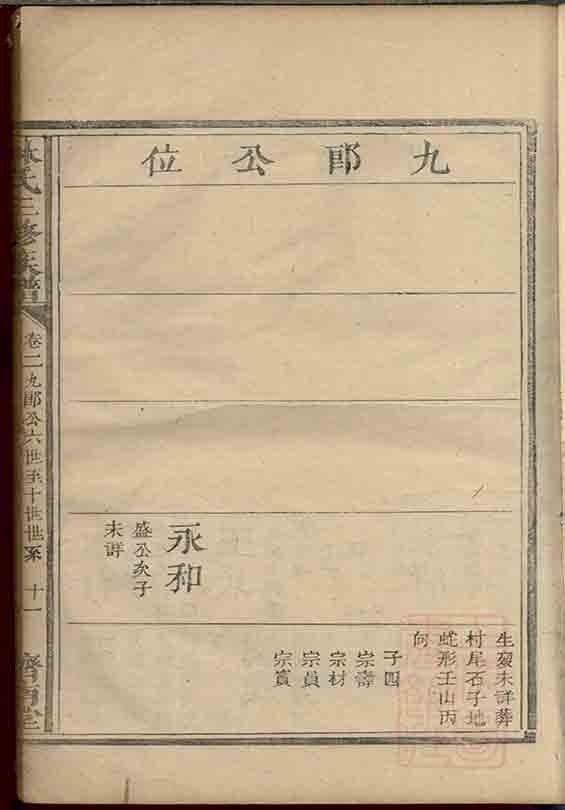 九郎公位
永和
盛公次子
未詳
生歿未詳葬
村尾石子地
蛇形壬山丙
向
子四
宗壽
宗材
宗員
宗賓
林氏三修族譜
卷二九郎公六世至十世世系
十一
濟南堂